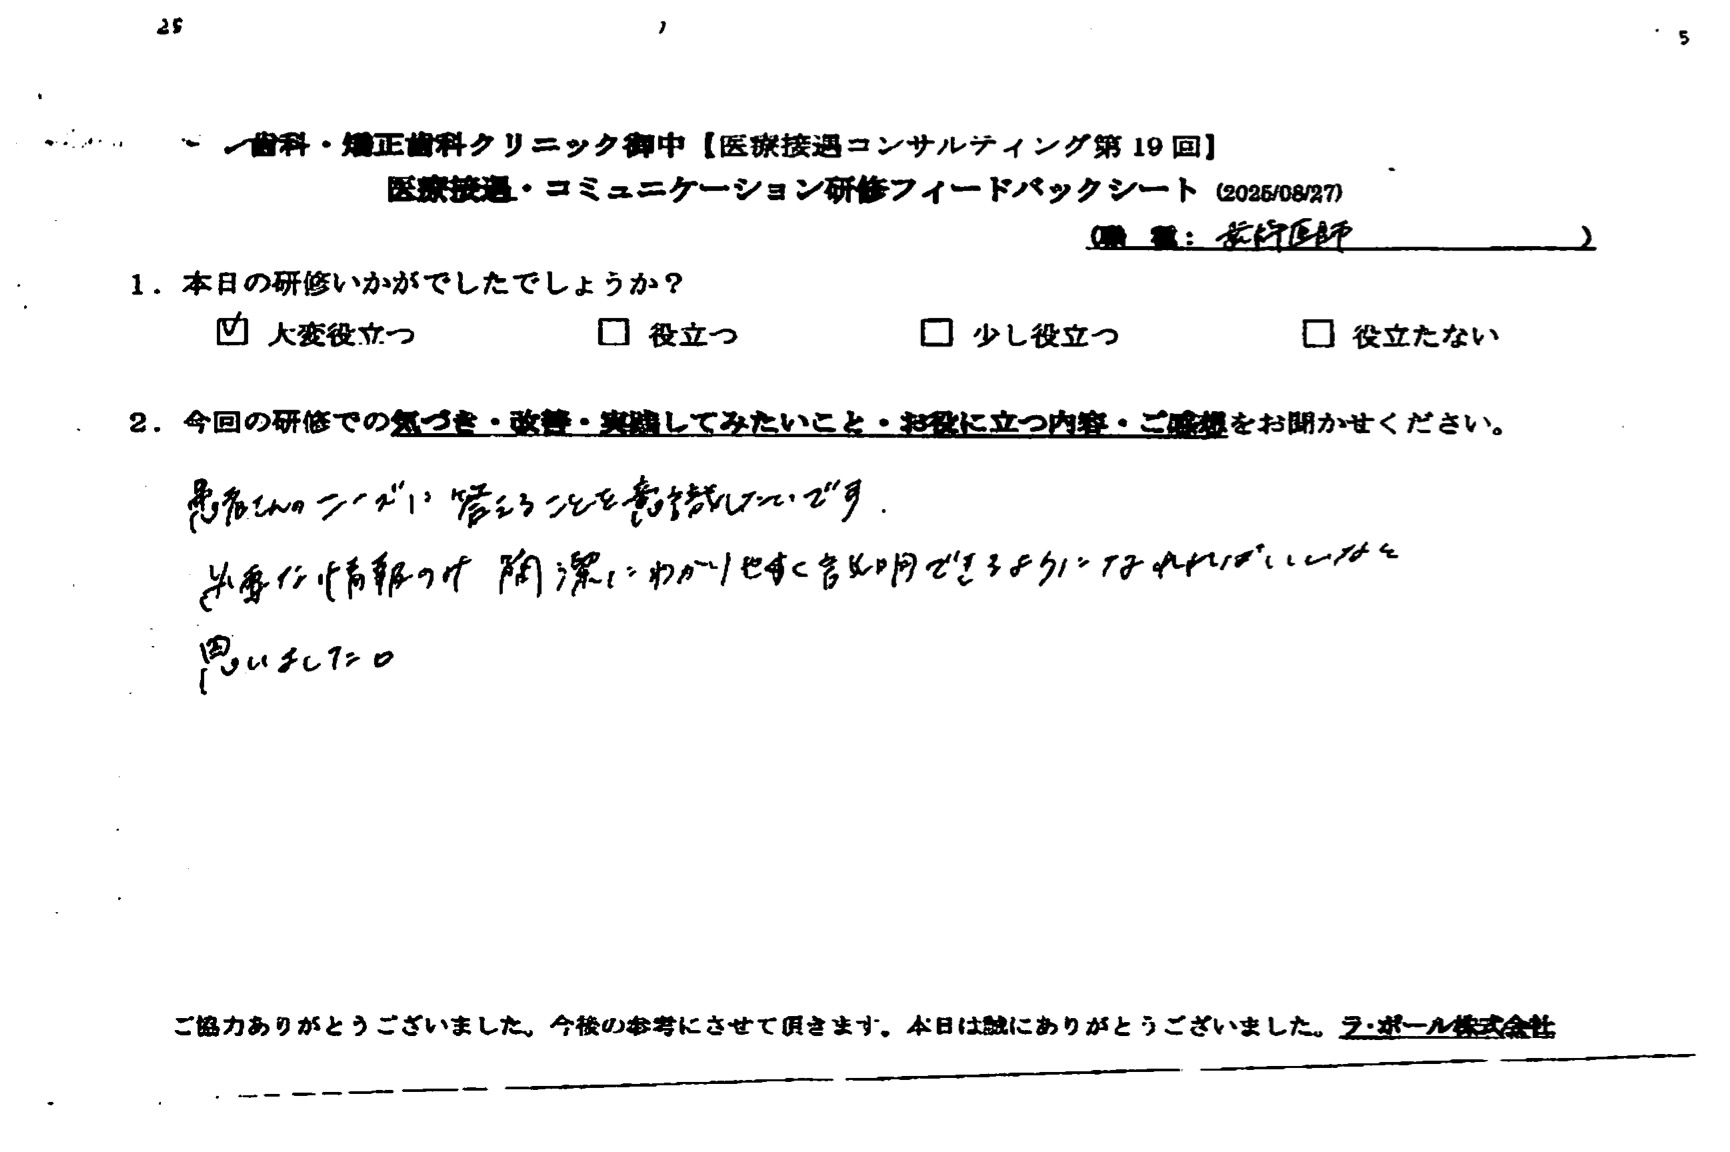 25
5
歯科・矯正歯科クリニック御中【医療接遇コンサルティング第 19 回】
医療接遇・コミュニケーション研修フィードバックシート (2025/08/27)
(職 種: 歯科医師 )
1. 本日の研修いかがでしたでしょうか?
☑ 大変役立つ □ 役立つ □ 少し役立つ □ 役立たない
2. 今回の研修での気づき・改善・実践してみたいこと・お役に立つ内容・ご感想をお聞かせください。
患者さんのニーズに答えることを意識したいです.
必要な情報のみ 簡潔にわかりやすく説明できるようになれればいいなと
思いました。
ご協力ありがとうございました。今後の参考にさせて頂きます。本日は誠にありがとうございました。ラ・ポール株式会社